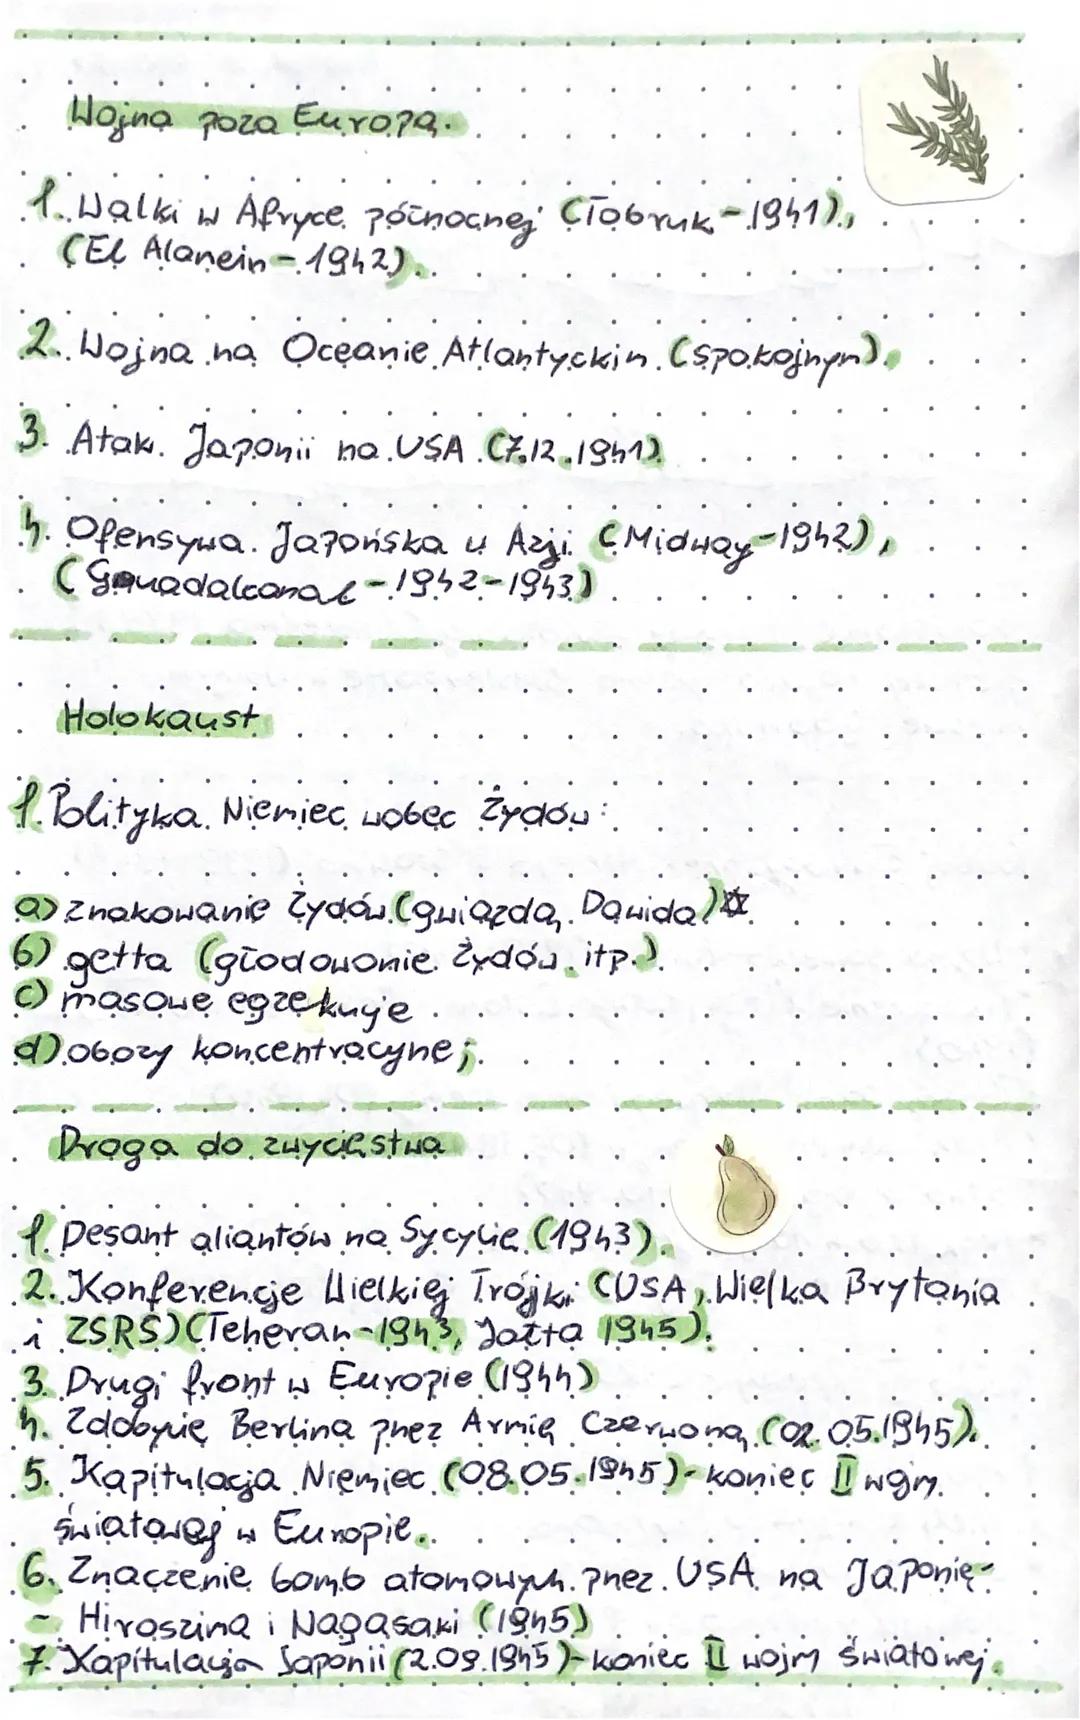 Wojna poza Europą.
1. Walki w Afryce północnej (Tobruk - 1941),
(El Alanein - 1942).
2. Wojna na Oceanie Atlantyckin (spokojnym).
3. Atak Japonii na USA (7.12.1941)
4. Ofensywa Japońska w Azji (Midway - 1942),
(Guadalcanal - 1942 - 1943)
Holokaust
1. Polityka Niemiec wobec Żydów:
a) znakowanie Żydów (gwiazdą Dawida) ✡
b) getta (głodowonie Żydów itp.)
c) masowe egzekucje
d) obozy koncentracyjne;
Droga do zwycięstwa
1. Desant aliantów na Sycylie (1943).
2. Konferencje Wielkiej Trójki (USA, Wielka Brytania
i ZSRS) (Teheran - 1943, Jałta 1945).
3. Drugi front w Europie (1944)
4. Zdobycie Berlina przez Armię Czerwoną (02.05.1945).
5. Kapitulacja Niemiec (08.05.1945) - koniec II wojny
światowej w Europie.
6. Znaczenie bomb atomowych przez USA na Japonię -
- Hiroszima i Nagasaki (1945)
7. Kapitulacja Japonii (2.09.1945) - koniec II wojny światowej.